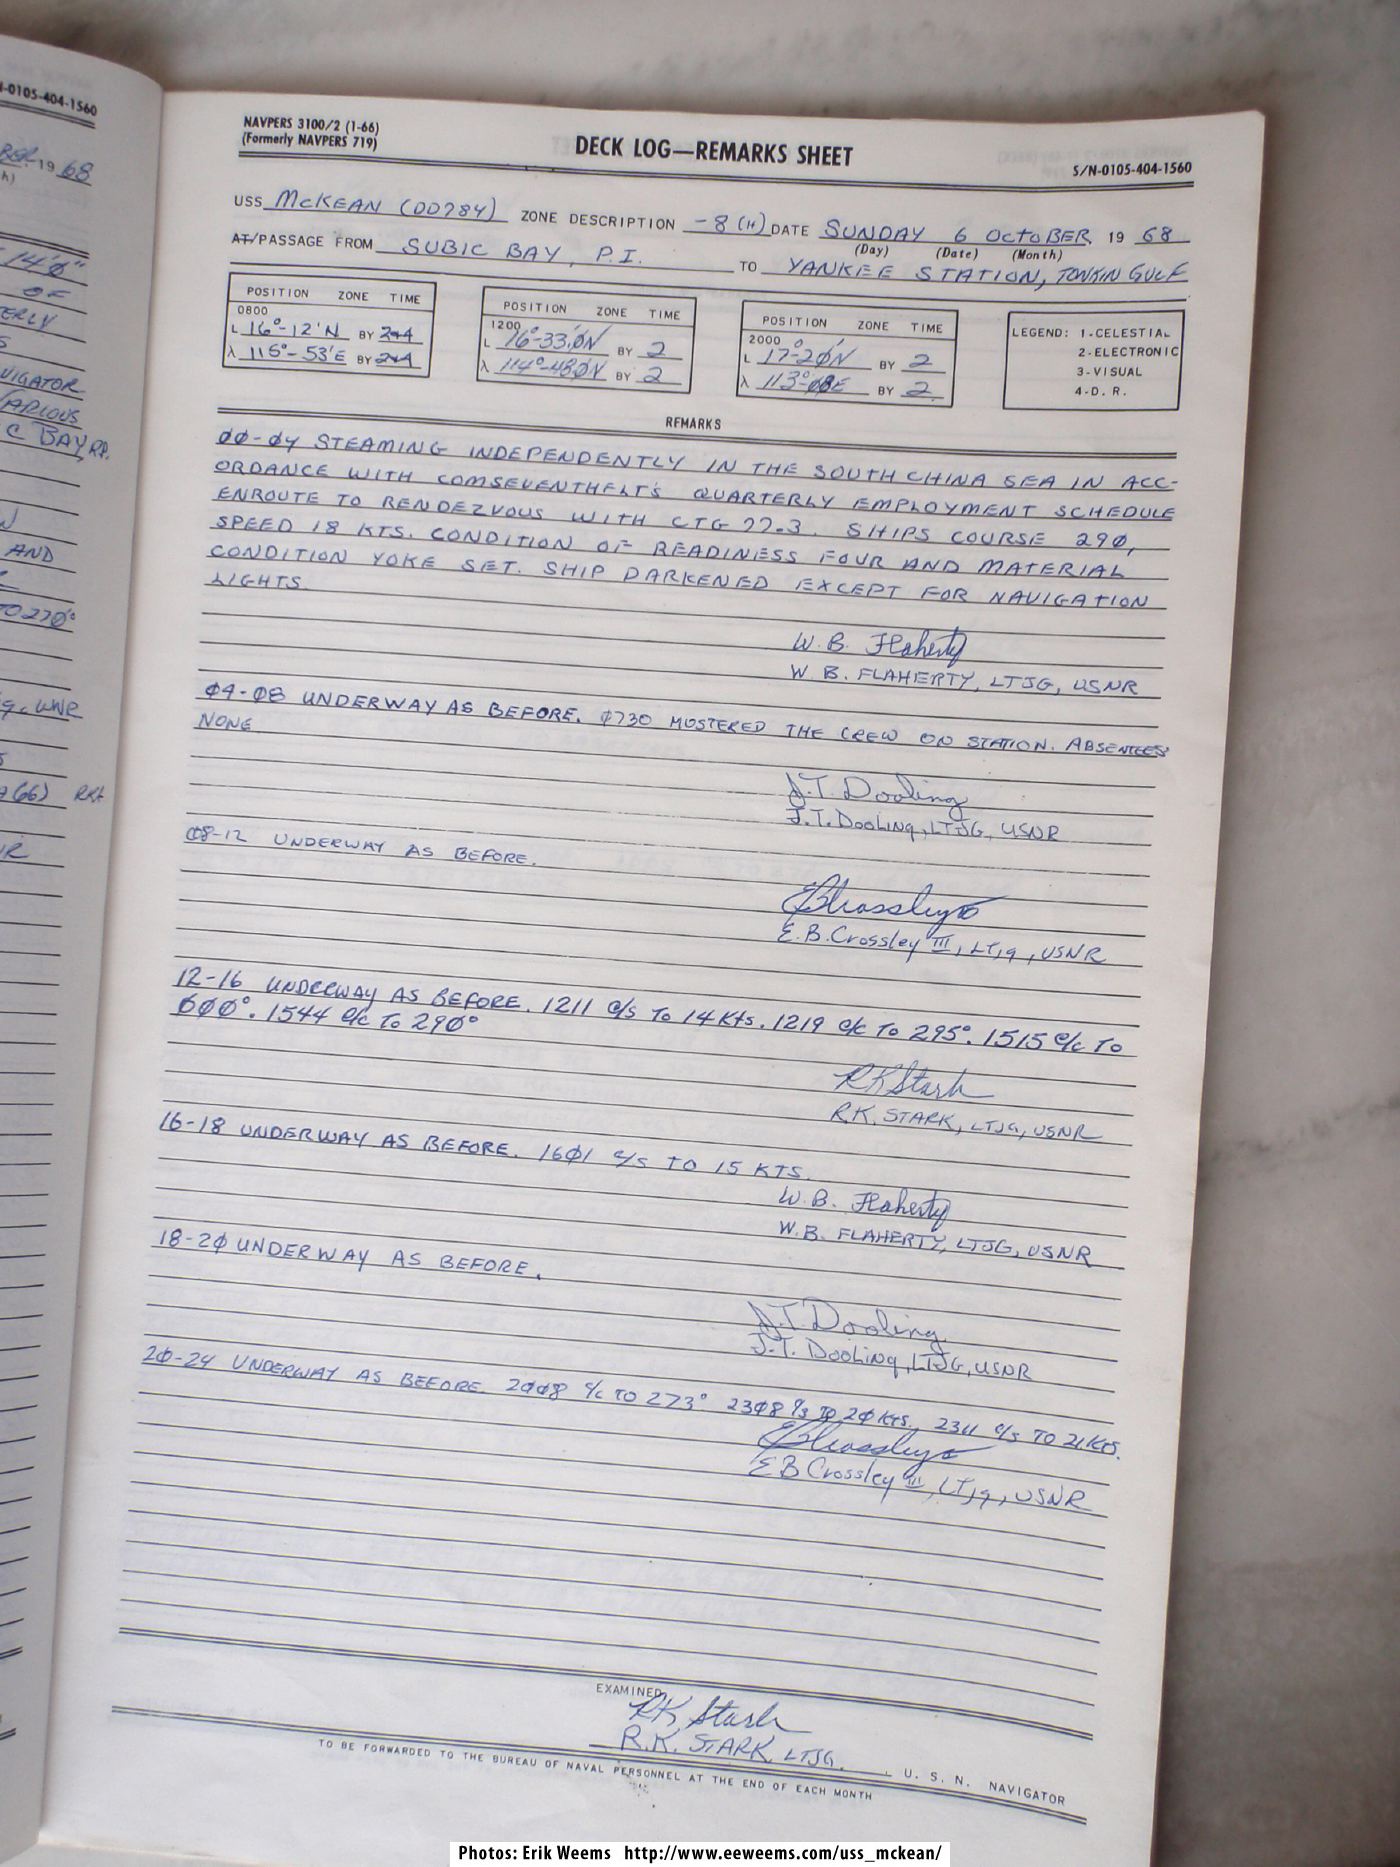 N-0105-404-1560
19 68
14'0"
OF
ERLY
VIGATOR
VARIOUS
C BAY, RP.
AND
TO 270°
(66) RKS
NAVPERS 3100/2 (1-66)
(Formerly NAVPERS 719)
DECK LOG—REMARKS SHEET
S/N-0105-404-1560
USS McKEAN (DD784) ZONE DESCRIPTION -8 (H) DATE SUNDAY 6 OCTOBER 19 68
(Day) (Date) (Month)
AT/PASSAGE FROM SUBIC BAY, P.I. TO YANKEE STATION, TONKIN GULF
POSITION ZONE TIME
0800
L 16°-12'N BY 2+4
λ 115°-53'E BY 2+4
POSITION ZONE TIME
1200
L 16°-33.0N BY 2
λ 114°-48.0N BY 2
POSITION ZONE TIME
2000
L 17°-20'N BY 2
λ 113°-08E BY 2
LEGEND: 1-CELESTIAL
2-ELECTRONIC
3-VISUAL
4-D. R.
REMARKS
00-04 STEAMING INDEPENDENTLY IN THE SOUTH CHINA SEA IN ACC-
ORDANCE WITH COMSEVENTHFLT'S QUARTERLY EMPLOYMENT SCHEDULE
ENROUTE TO RENDEZVOUS WITH CTG 77.3. SHIPS COURSE 290,
SPEED 18 KTS. CONDITION OF READINESS FOUR AND MATERIAL
CONDITION YOKE SET. SHIP DARKENED EXCEPT FOR NAVIGATION
LIGHTS.
W. B. Flaherty
W. B. FLAHERTY, LTJG, USNR
04-08 UNDERWAY AS BEFORE. 0730 MUSTERED THE CREW ON STATION. ABSENTEES:
NONE
J.T. Dooling
J.T. Dooling, LTJG, USNR
08-12 UNDERWAY AS BEFORE.
EBCrossley III
E.B. Crossley III, LTjg, USNR
12-16 UNDERWAY AS BEFORE. 1211 c/s To 14 Kts. 1219 c/c To 295°. 1515 c/c To
000°. 1544 c/c To 290°
RK Stark
R.K. STARK, LTJG, USNR
16-18 UNDERWAY AS BEFORE. 1601 c/s TO 15 KTS.
W. B. Flaherty
W. B. FLAHERTY, LTJG, USNR
18-20 UNDERWAY AS BEFORE.
J.T. Dooling
J.T. Dooling, LTJG, USNR
20-24 UNDERWAY AS BEFORE. 2008 c/c TO 273° 2308 c/s TO 20 KTS. 2311 c/s TO 21 KTS.
EBCrossley III
E B Crossley III, LTjg, USNR
EXAMINED
RK Stark
R.K. STARK, LTJG. , U. S. N. NAVIGATOR
TO BE FORWARDED TO THE BUREAU OF NAVAL PERSONNEL AT THE END OF EACH MONTH
Photos: Erik Weems http://www.eeweems.com/uss_mckean/